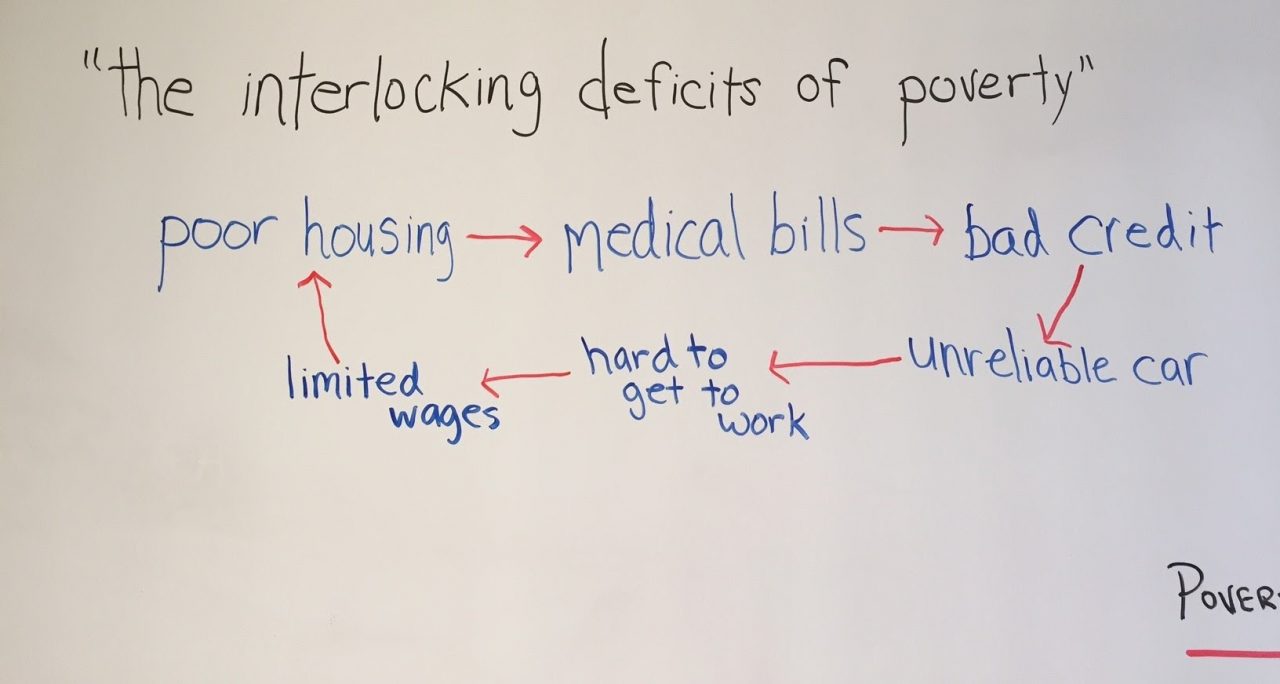 "the interlocking deficits of poverty"
poor housing → medical bills → bad credit
unreliable car
hard to
get to
work
limited
wages
POVER